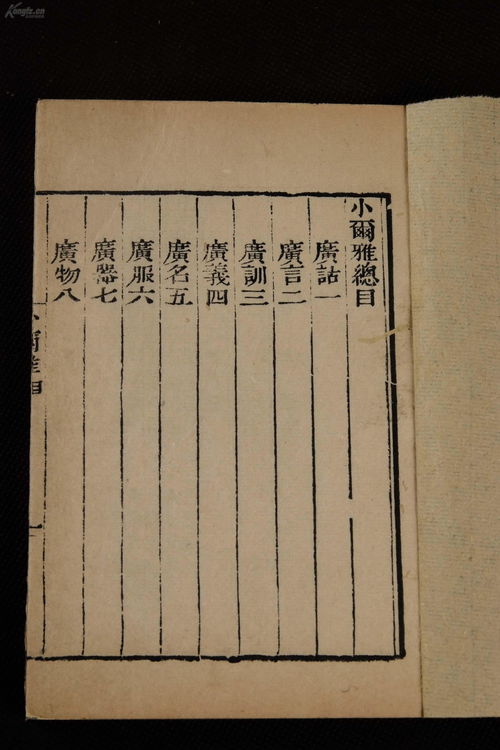 小爾雅總目
廣詁一
廣言二
廣訓三
廣義四
廣名五
廣服六
廣器七
廣物八
Kongfz.cn